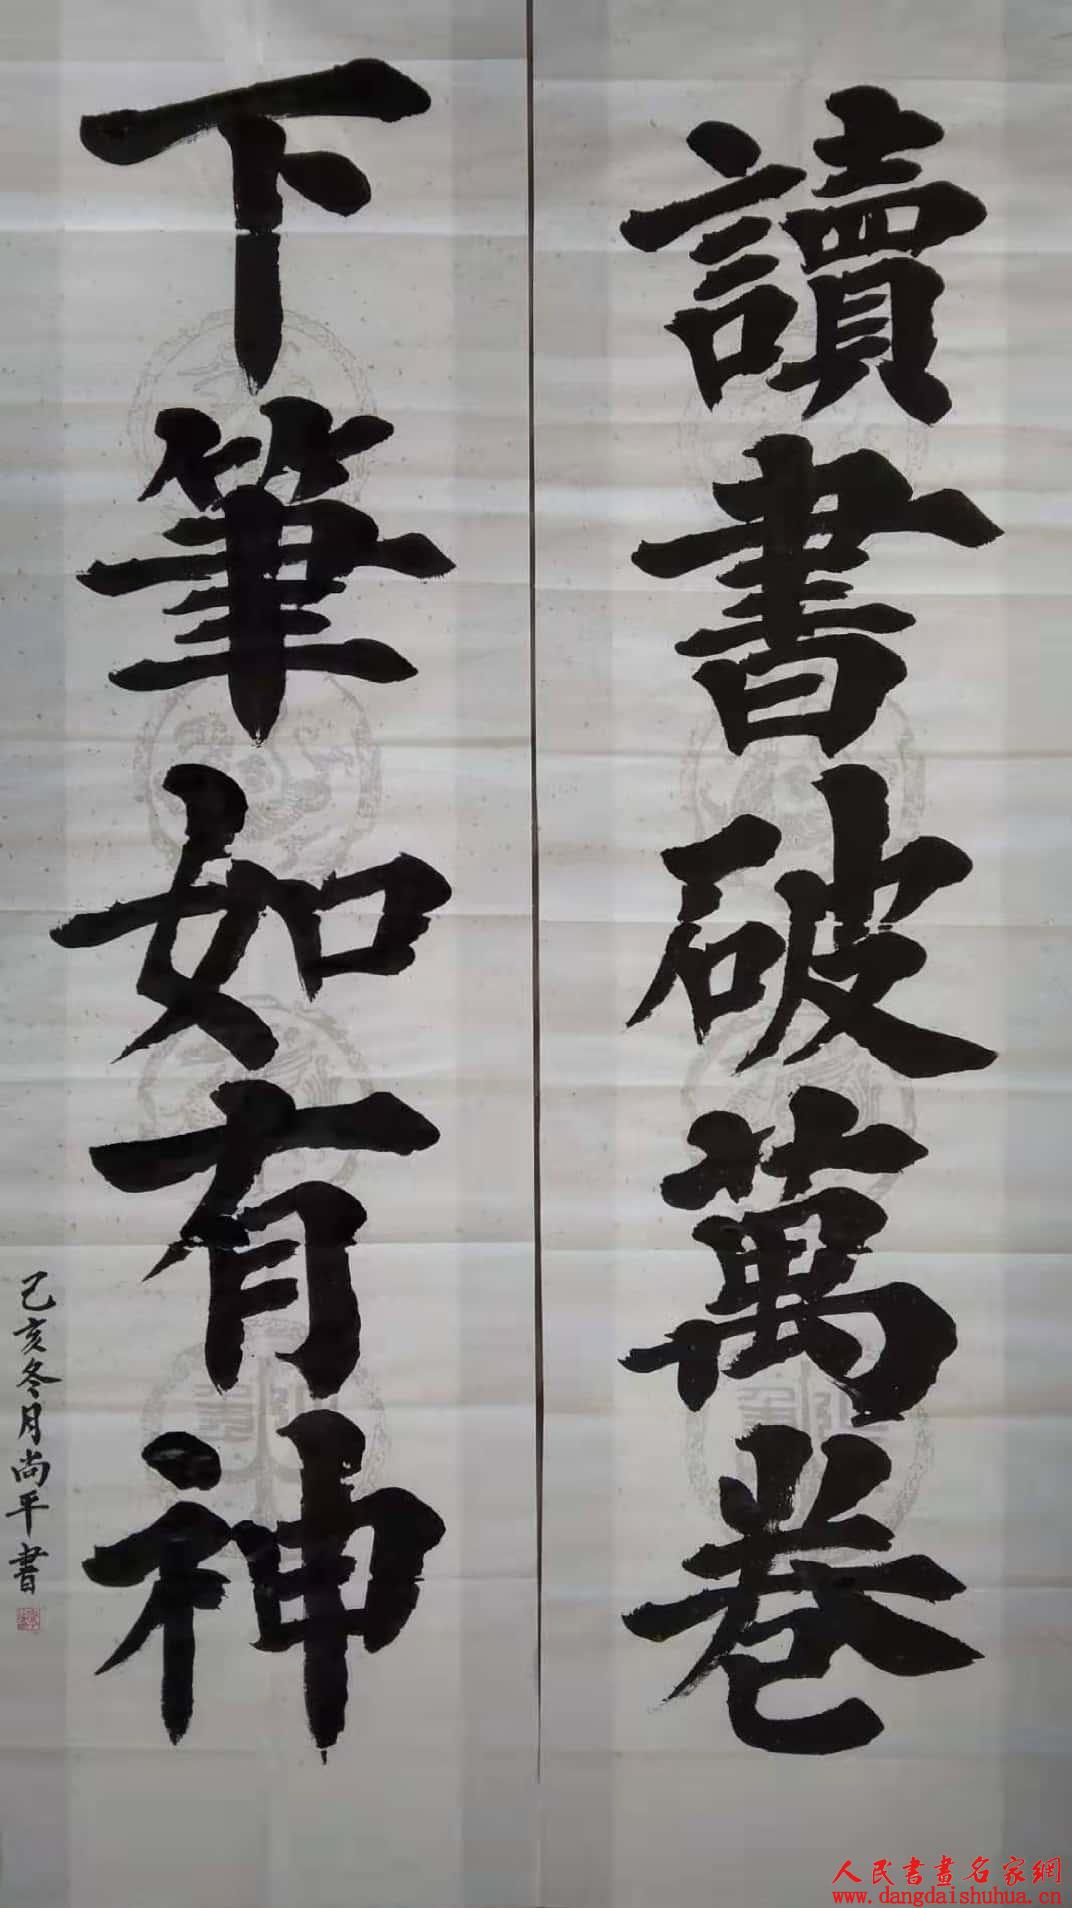 讀書破萬卷
下筆如有神
己亥冬月尚平書
人民書畫名家網
www.dangdaishuhua.cn